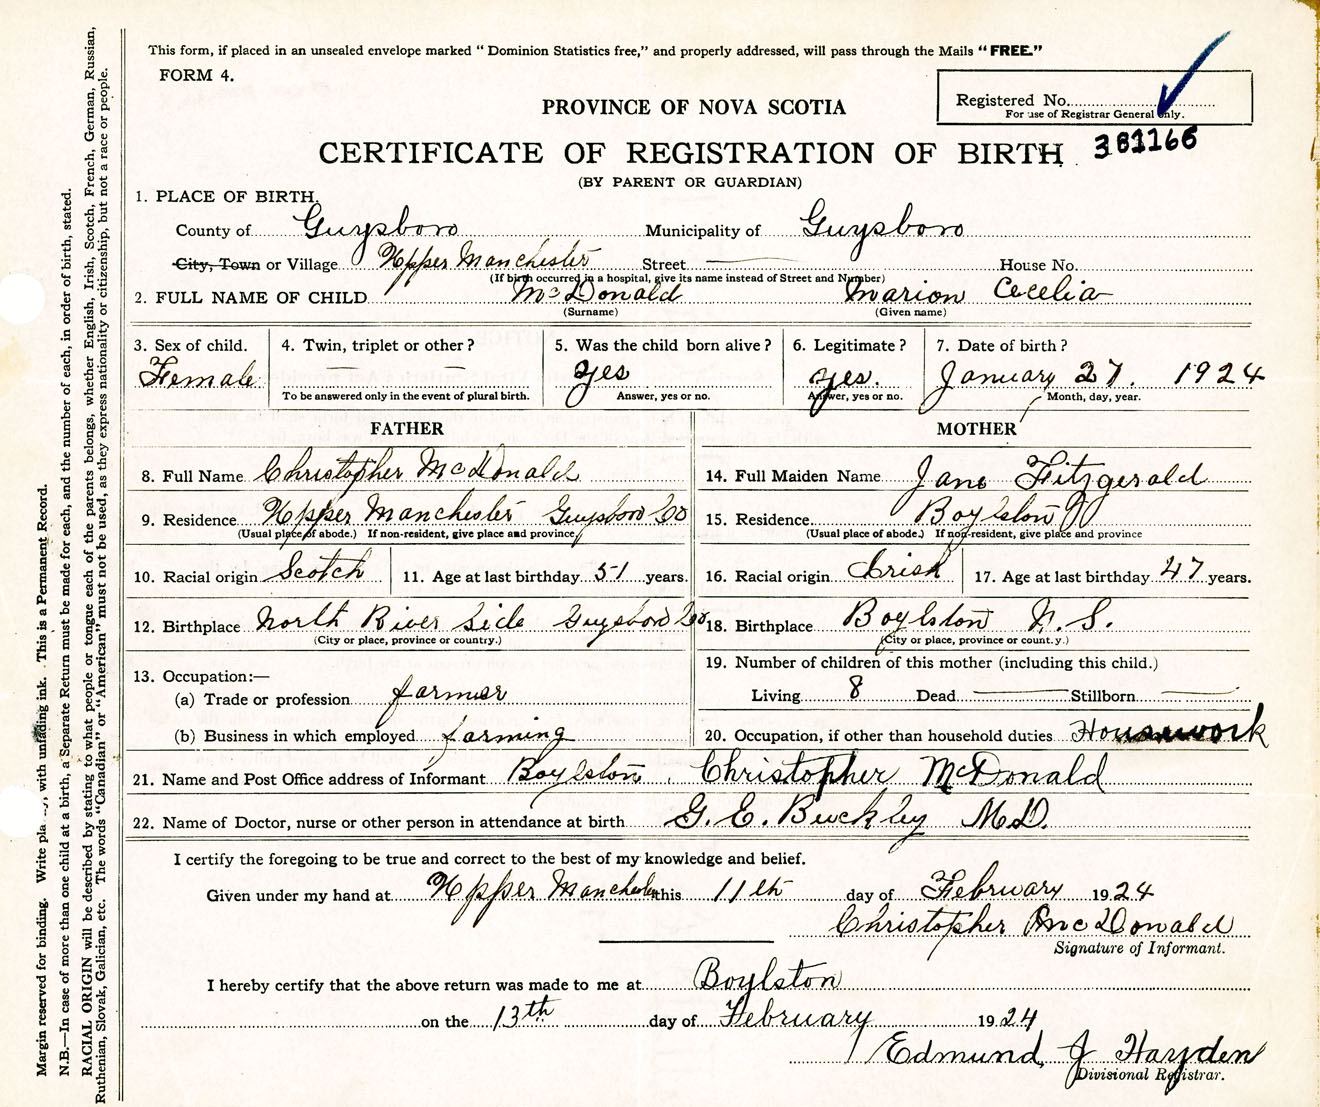 This form, if placed in an unsealed envelope marked "Dominion Statistics free," and properly addressed, will pass through the Mails "FREE."
FORM 4.
Registered No.
For use of Registrar General only.
PROVINCE OF NOVA SCOTIA
381166
CERTIFICATE OF REGISTRATION OF BIRTH
(BY PARENT OR GUARDIAN)
1. PLACE OF BIRTH.
County of Guysboro Municipality of Guysboro
City, Town or Village Upper Manchester Street House No.
(If birth occurred in a hospital, give its name instead of Street and Number)
2. FULL NAME OF CHILD McDonald Marion Cecelia
(Surname) (Given name)
3. Sex of child. 4. Twin, triplet or other? 5. Was the child born alive? 6. Legitimate? 7. Date of birth?
Female — — Yes Yes. January 27. 1924
To be answered only in the event of plural birth. Answer, yes or no. Answer, yes or no. Month, day, year.
FATHER MOTHER
8. Full Name Christopher McDonald 14. Full Maiden Name Jane Fitzgerald
9. Residence Upper Manchester Guysboro Co 15. Residence Boylston
(Usual place of abode.) If non-resident, give place and province, (Usual place of abode.) If non-resident, give place and province
10. Racial origin Scotch 11. Age at last birthday 51 years. 16. Racial origin Irish 17. Age at last birthday 47 years.
12. Birthplace North River Side Guysboro Co 18. Birthplace Boylston N.S.
(City or place, province or country.) (City or place, province or count.y.)
13. Occupation:— 19. Number of children of this mother (including this child.)
(a) Trade or profession farmer Living 8 Dead — Stillborn —
(b) Business in which employed farming 20. Occupation, if other than household duties Housework
21. Name and Post Office address of Informant Boylston. Christopher McDonald
22. Name of Doctor, nurse or other person in attendance at birth G. E. Buckley M.D.
I certify the foregoing to be true and correct to the best of my knowledge and belief.
Given under my hand at Upper Manchester this 11th day of February 1924
Christopher McDonald
Signature of Informant.
I hereby certify that the above return was made to me at Boylston
on the 13th day of February 1924
Edmund, J Hayden
Divisional Registrar.
Margin reserved for binding. Write plainly, with unfading ink. This is a Permanent Record.
N.B.—In case of more than one child at a birth, a Separate Return must be made for each, and the number of each, in order of birth, stated.
RACIAL ORIGIN will be described by stating to what people or tongue each of the parents belongs, whether English, Irish, Scotch, French, German, Russian,
Ruthenian, Slovak, Galician, etc. The words "Canadian" or "American" must not be used, as they express nationality or citizenship, but not a race or people.